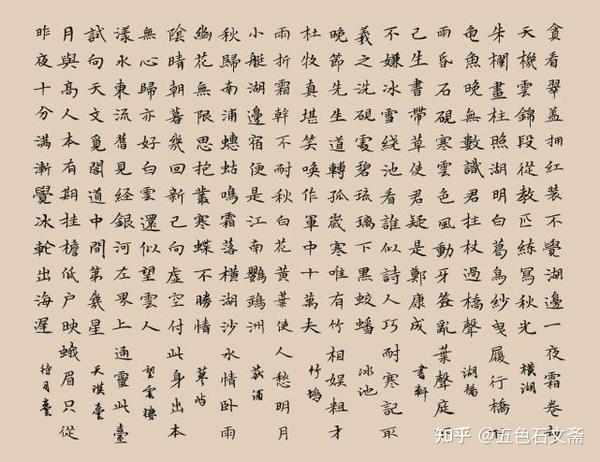 貪看翠盖拥紅装不覺湖邊一夜霜卷却
天機雲錦段從教匹練寫秋光 横湖
朱欄畫柱照湖明白葛烏紗曳履行橋下
龟魚晚無數識君拄杖過橋聲 湖橋
雨昏石硯寒雲色風動牙簽亂葉聲庭下
已生書帶草使君疑是鄭康成 書軒
不嫌冰雪绕池看誰似詩人巧耐寒記取
羲之洗硯處碧琉璃下黑蛟蟠 冰池
晚節先生道轉孤歲寒唯有竹相娱粗才
杜牧真堪笑唤作軍中十萬夫 竹塢
雨折霜幹不耐秋白花黄葉使人愁明月
小艇湖邊宿便是江南鸚鵡洲 荻浦
秋歸南浦蟪蛄鳴霜落横湖沙水情卧雨
幽花無限思抱叢寒蝶不勝情 蓼屿
陰晴朝暮幾回新已向虚空付此身出本
無心歸亦好白雲還似望雲人 望雲樓
漾水東流舊見経銀河左界上通靈此臺
試向天文覓閣道中間第幾星 天漢臺
月與高人本有期挂檐低户映蛾眉只從
昨夜十分满漸覺冰輪出海遲 待月臺
知乎 @五色石文斋